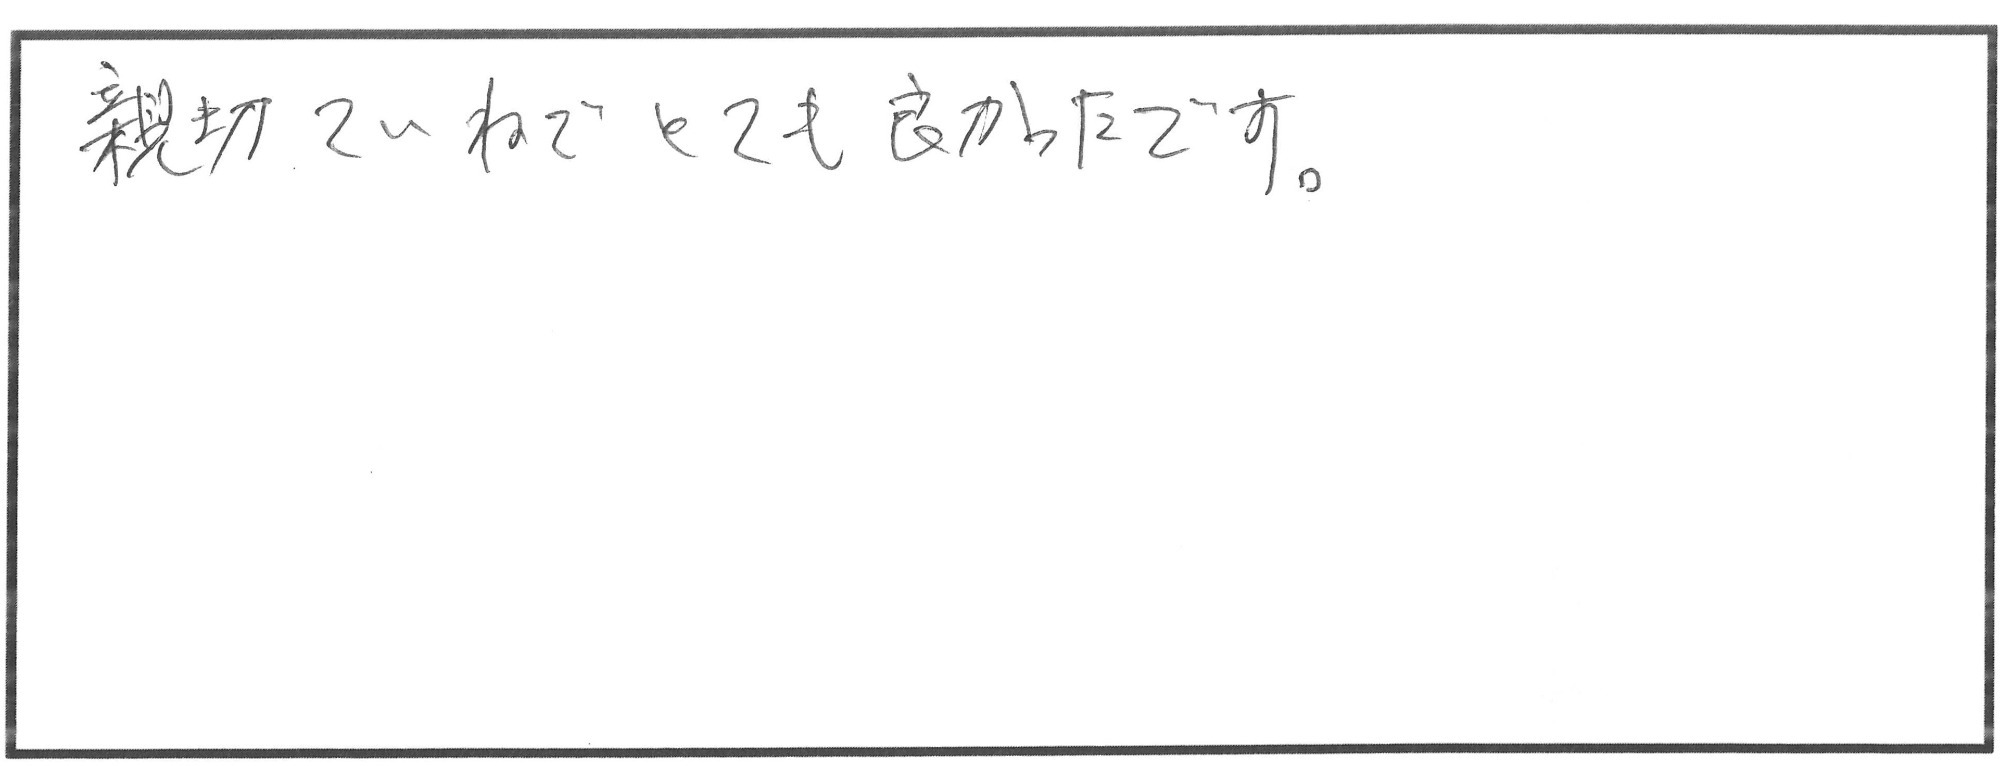 親切ていねでとても良かったです。